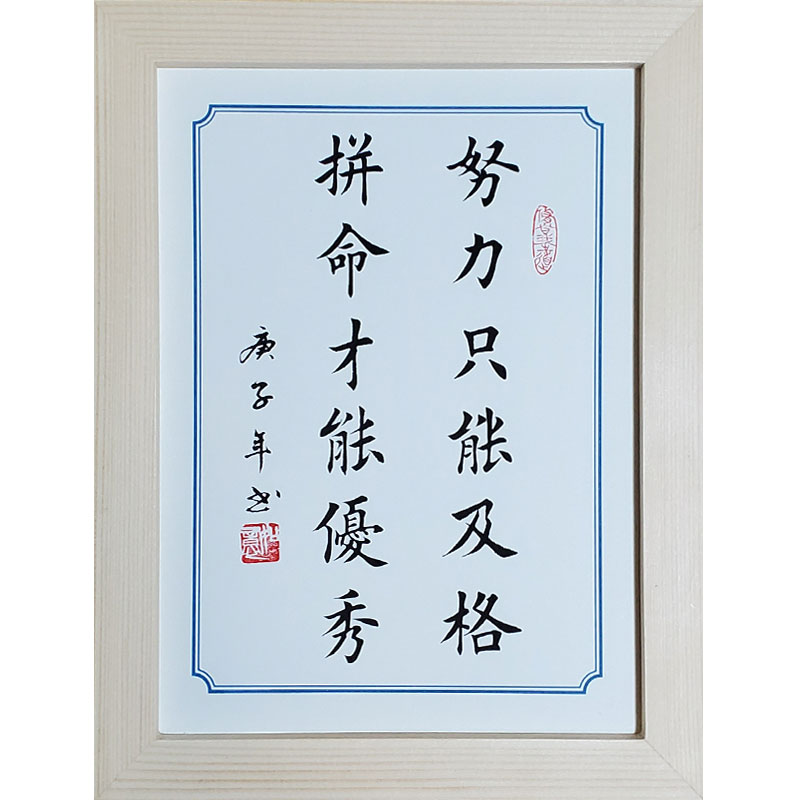 努力只能及格
拼命才能優秀
庚子年书